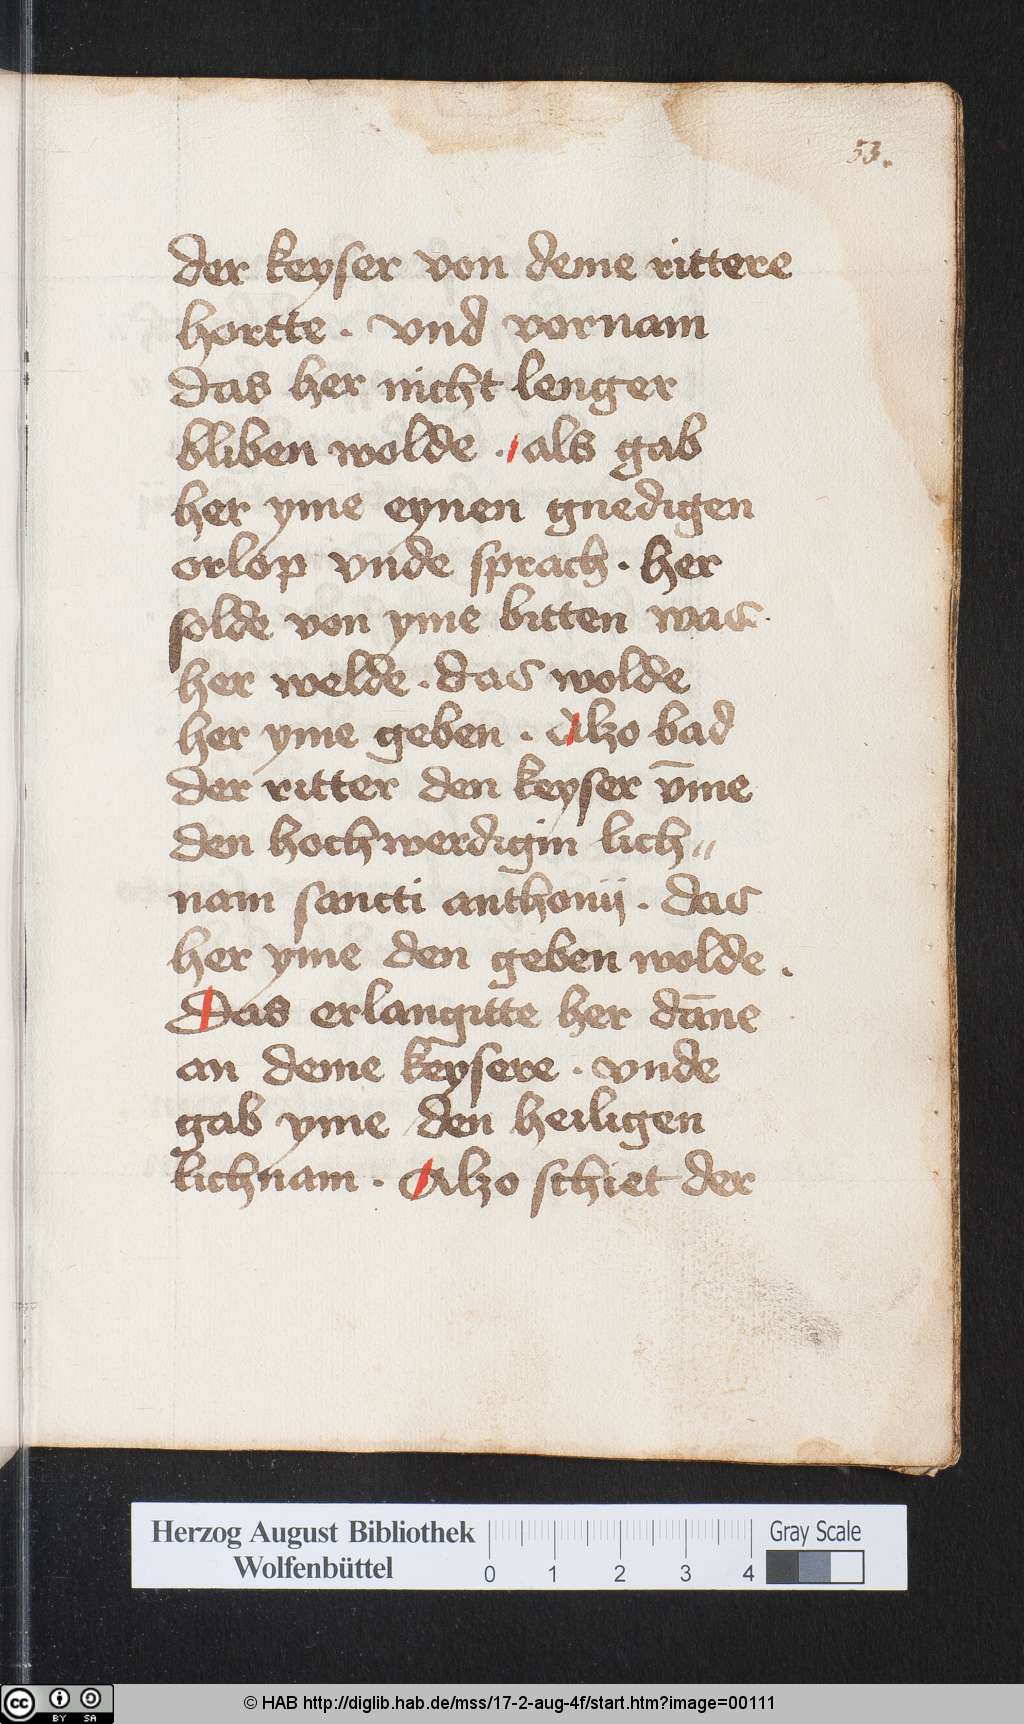 53.
der keyser von deme rittere
hortte . vnd vornam
das her nicht lenger
bliben wolde . als gab
her yme eynen gnedigen
orlop vnde sprach . her
solde von yme bitten was
her welde . das wolde
her yme geben . Alzo bad
der ritter den keyser v̄me
den hochwerdigin lich〃
nam sancti anthonij . das
her yme den geben wolde .
Das erlangitte her dāne
an deme keysere . vnde
gab yme den heiligen
lichnam . Alzo schiet der
Herzog August Bibliothek
Wolfenbüttel
0 1 2 3 4
Gray Scale
cc BY SA
© HAB http://diglib.hab.de/mss/17-2-aug-4f/start.htm?image=00111